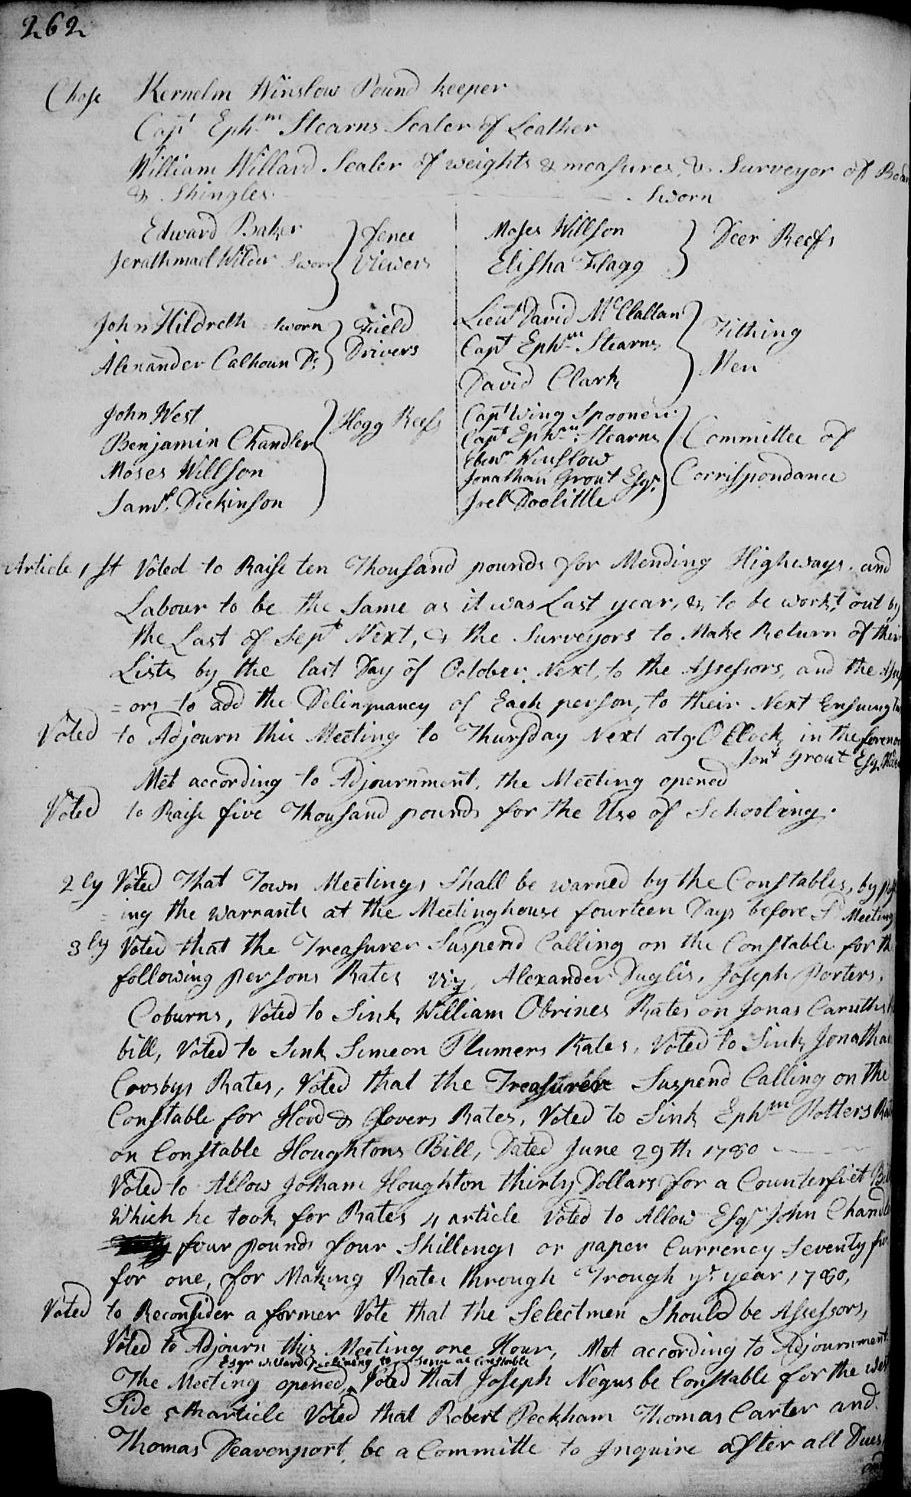 262
Chose Kernelm Winslow Pound keeper
Capt Ephm Stearns Sealer of Leather
William Willard Sealer of weights & measures, & Surveyor of
& Shingles Sworn
Edward Baker
Jerathmael Wilder Sworn
Fence
Viewers
Moses Willson
Elisha Flagg
Deer Reefs
John Hildreth Sworn
Alexander Calhoun Do
Field
Drivers
Lieut David McClallan
Capt Ephm Stearns
David Clark
Tithing
Men
John West
Benjamin Chandler
Moses Willson
Saml Dickinson
Hogg Reefs
Capt Wing Spooner
Capt Ephm Stearns
Ebenr Winslow
Jonathan Grout Esqr
Joel Doolittle
Committee of
Corrispondance
Article 1st Voted to Raise ten Thousand pounds for Mending Highways and
Labour to be the Same as it was Last year, & to be workt out by
the Last of Sept Next, & the Surveyors to Make Return of their
Lists by the last Day of October Next, to the Assessors, and the Assess
=ors to add the Delinquancy of Each person, to their Next Ensuing
Voted to Adjourn this Meeting to Thursday Next at 9 O Clock in the forenoon
Jont Grout Esq
Met according to Adjournment, the Meeting opened
Voted to Raise five Thousand pounds for the Use of Schooling.
2ly Voted That Town Meetings Shall be warned by the Constables, by
=ing the warrants at the Meetinghouse fourteen Days before Sd Meeting
3ly Voted that the Treasurer Suspend Calling on the Constable for the
following persons Rates viz, Alexander Duglis, Joseph Porters,
Coburns, Voted to Sink William Obrines Rates on Jonas Caruths
bill, Voted to Sink Simeon Plumers Rates, Voted to Sink Jonathan
Crosbys Rates, Voted that the Treasurer Suspend Calling on the
Constable for Hovd & Glovers Rates, Voted to Sink Ephm Potters
on Constable Houghtons Bill, Dated June 29th 1780
Voted to Allow Jotham Houghton thirty Dollars for a Counterfiet
Which he took for Rates 4 article Voted to Allow Esqr John Chand
four pounds four Shillings or paper Currency Seventy
for one, for Making Rates through Trough ye year 1780,
Voted to Reconsider a former Vote that the Selectmen Should be Assessors,
Voted to Adjourn this Meeting one Hour, Met according to Adjournment,
Esqr Willard Declining to serve as Constable
The Meeting opened, Voted that Joseph Negus be Constable for the
Side 5th article Voted that Robert Peckham Thomas Carter and
Thomas Deavenport, be a Committe to Inquire after all Dues